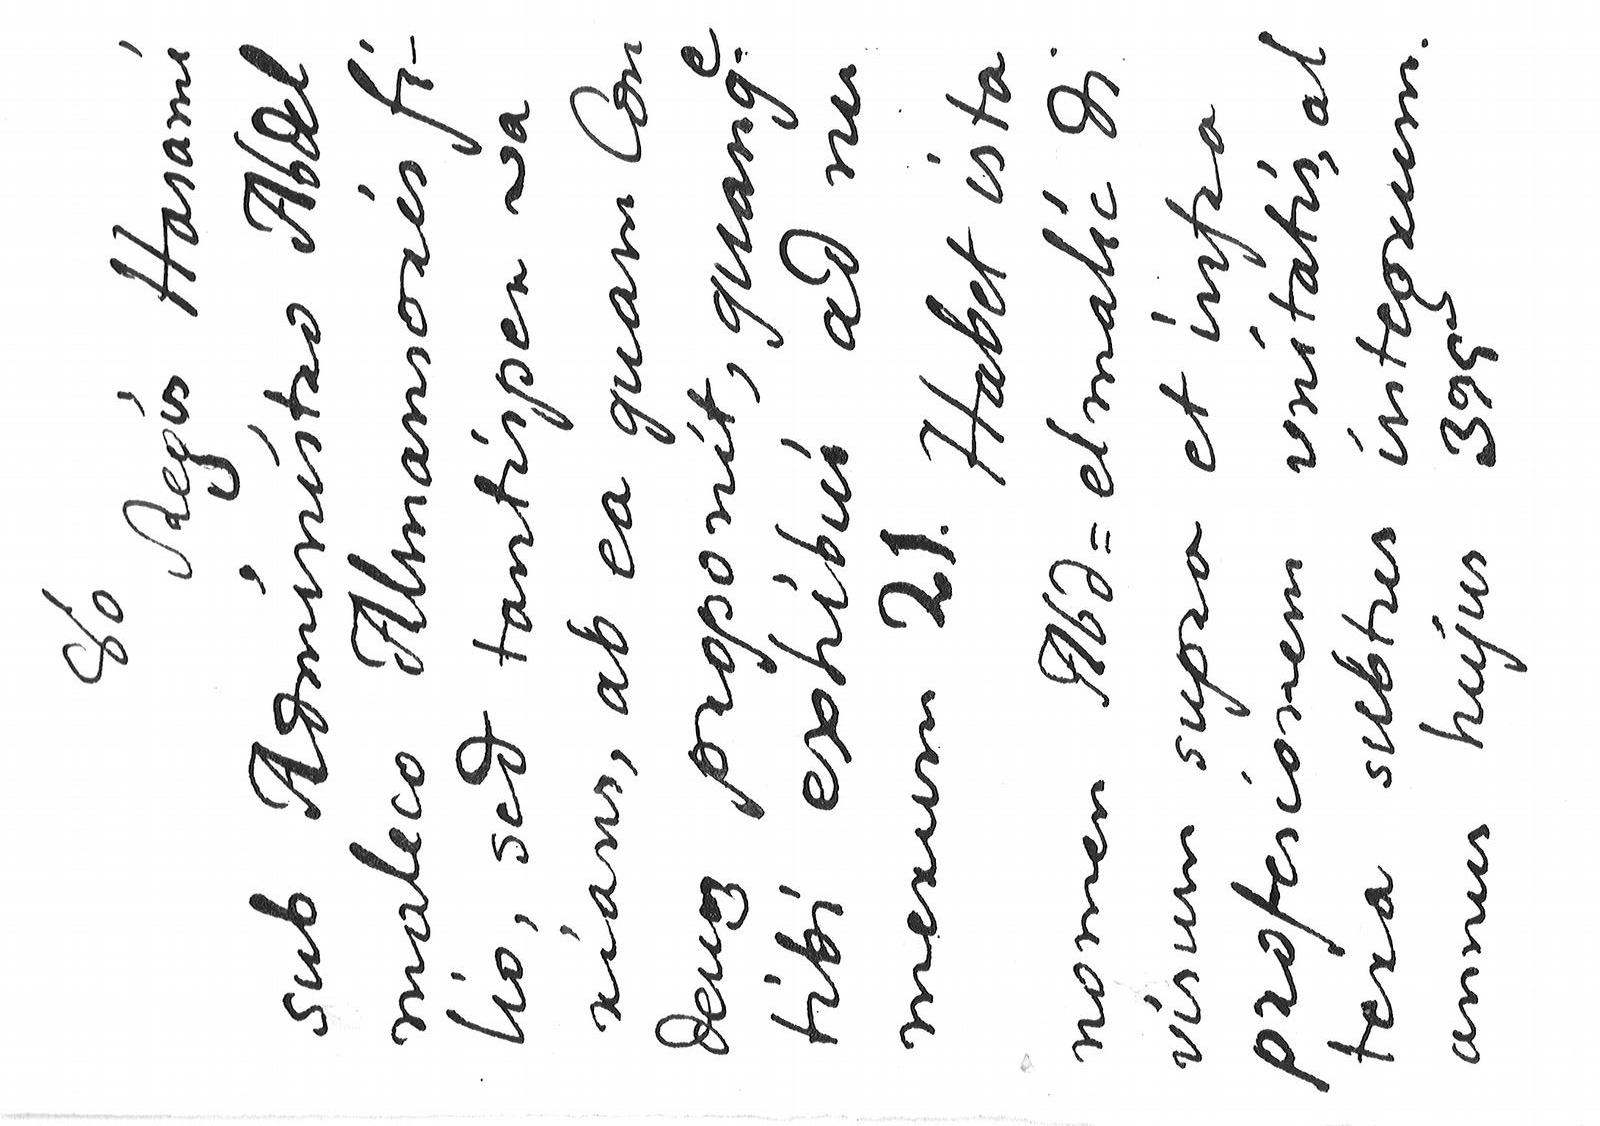 80
Regis Hasami
sub Administro Abdel
maleco Almansoris fi-
lio, sed tantisper va
rians, ab ea quam Con
deus proponit, quamq̃e
tibi exhibui ad nu
merum 21. Habet ista
nomen Abd=elmalic di
visum supra et infra
profesionem unitatis, al
tera subtus integrum.
annus hujus 395